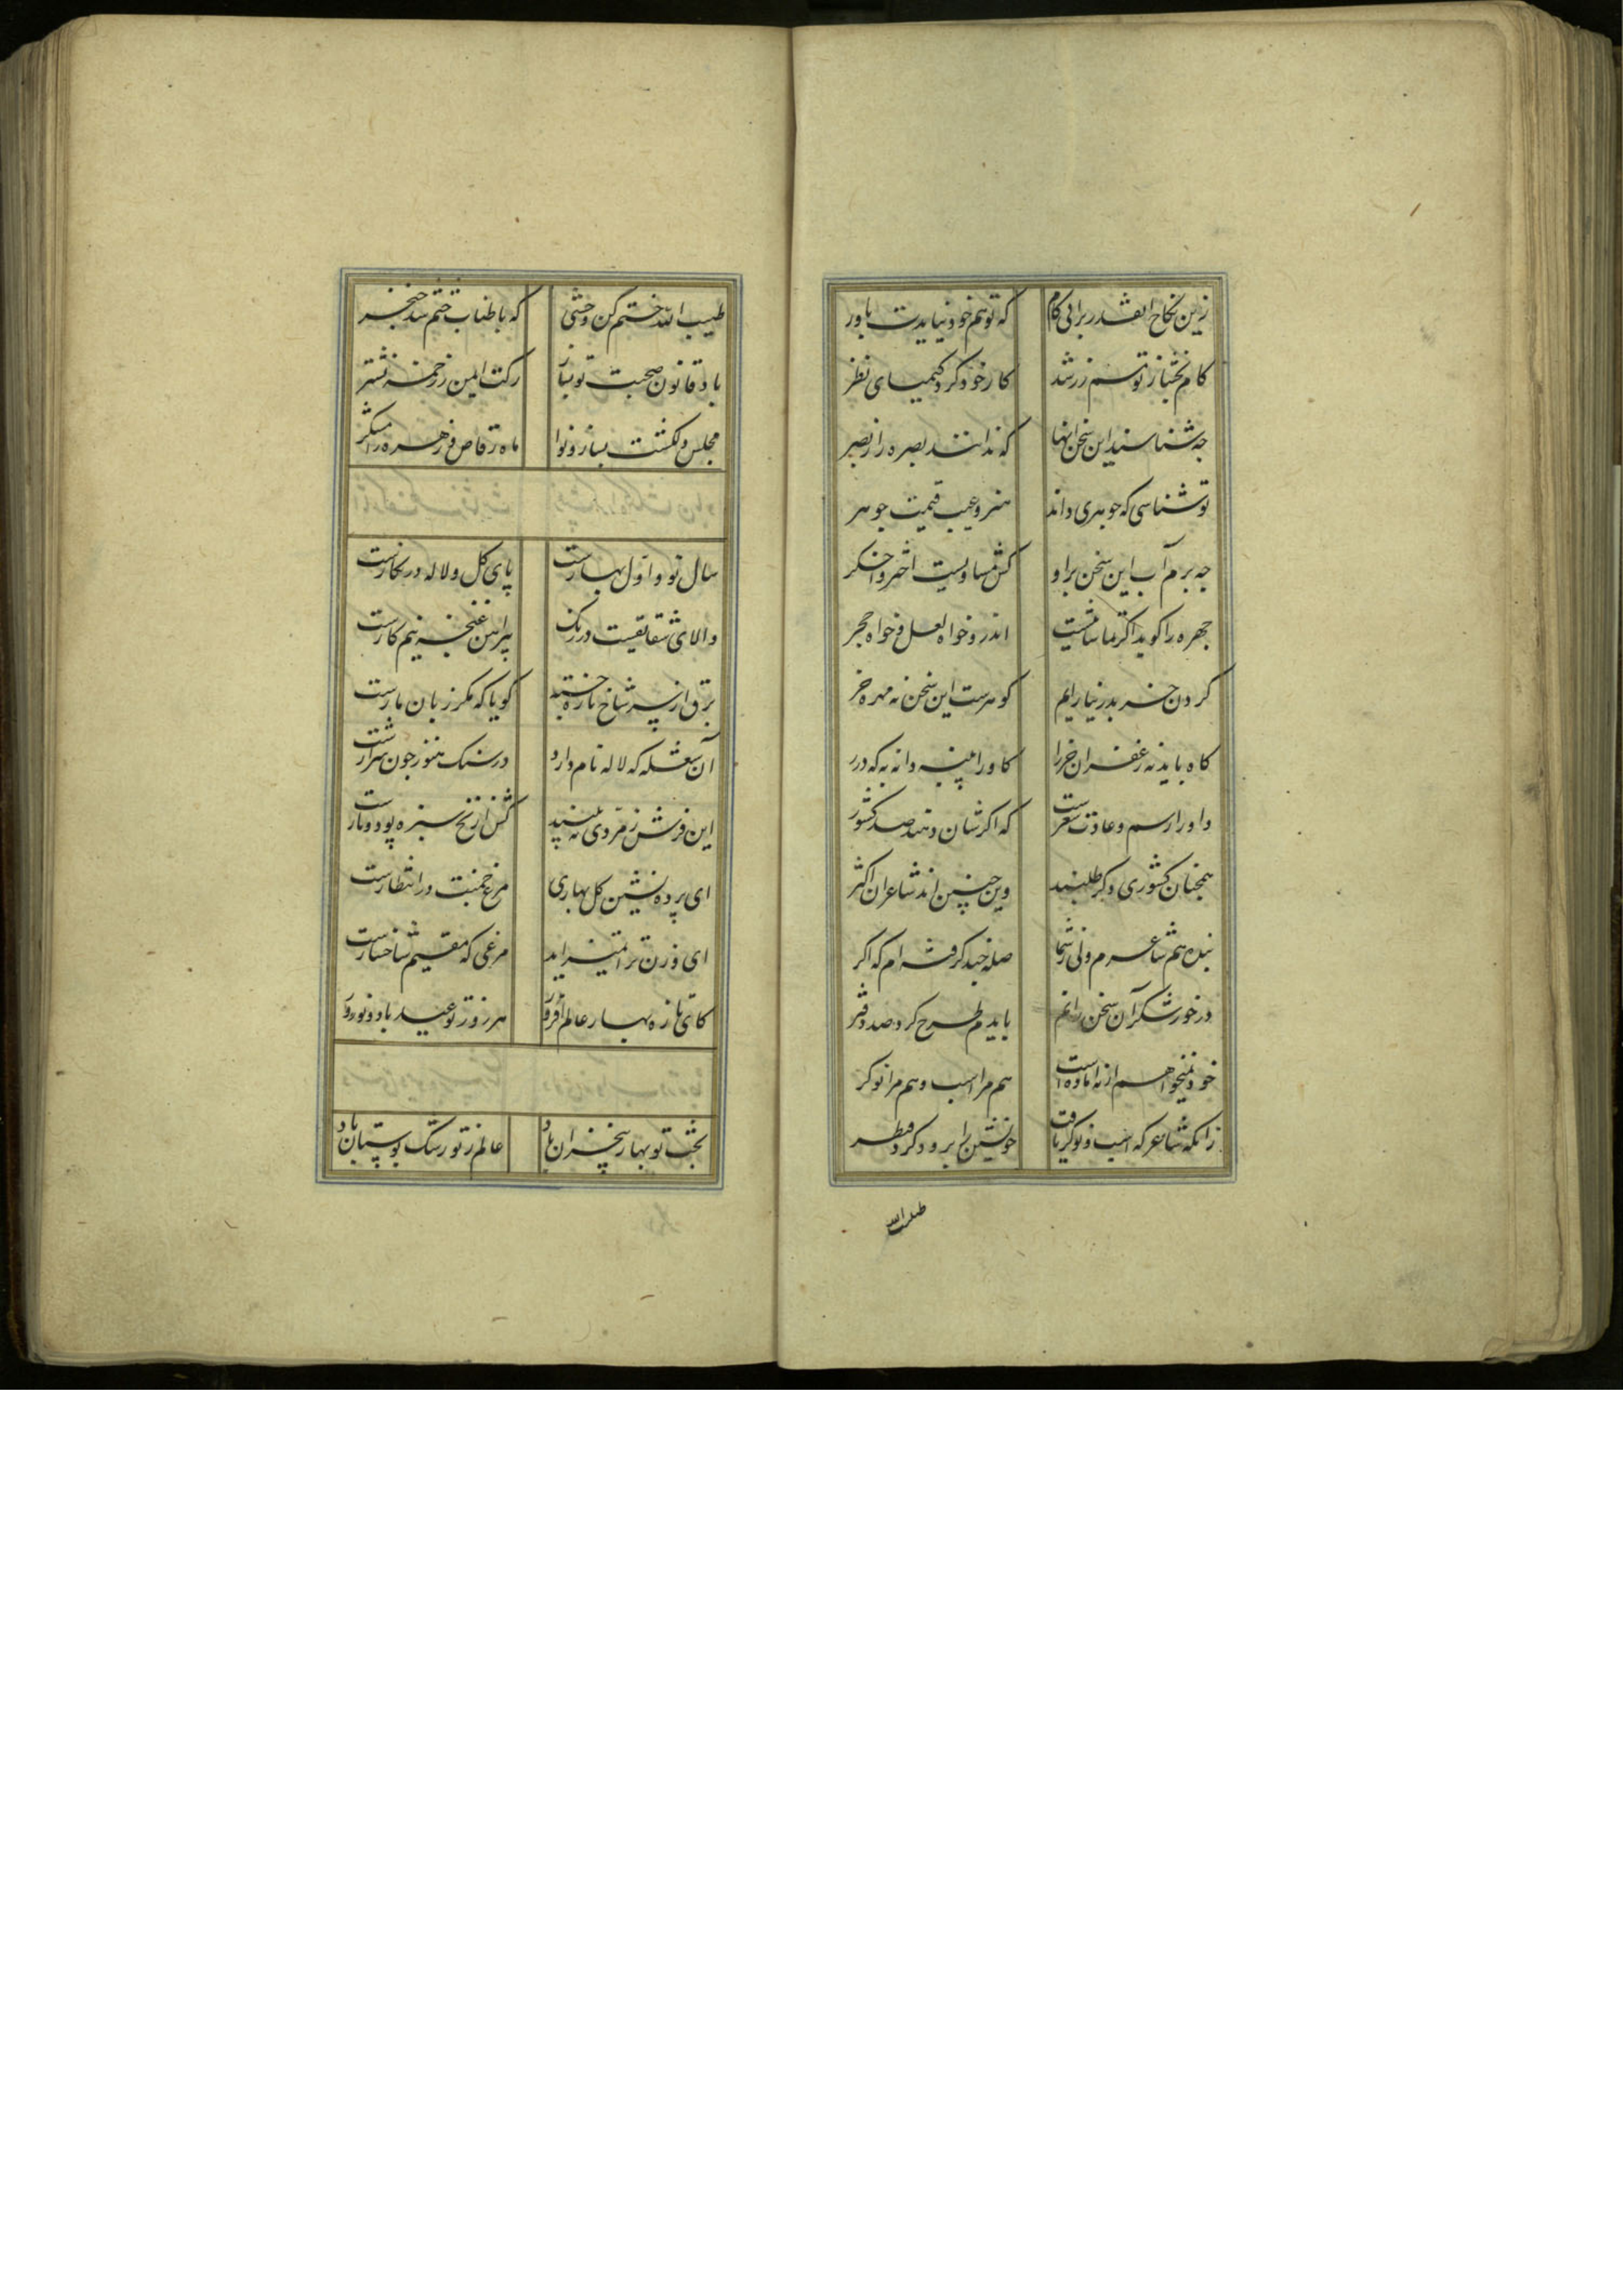 زین نکاح اینقدر برانی کام که تو هم خود نیایدت باور
کام بخشا ز تو مسم زر شد کار خود کرد کیمیای نظر
چه شناسند این سخن اینها که ندانند بصره را ز بصر
تو شناسی که جوهری داند هنر و عیب و قیمت جوهر
چه برم آب این سخن بر او کش مساویست اخگر و اختر
چهره را گوید اگر ماناست اندرو خواه لعل و خواه حجر
گردن خر بدر نیارایم گوهرست این سخن نه مهره خر
کاه باید نه زعفران خر را گاو را پنبه دانه به که درر
داورا رسم و عادت شعراست که اگرشان دهند صد کشور
همچنان کشوری دگر طلبند وین چنین اند شاعران اکثر
بنده هم شاعرم ولی ز شما صله چند گرفته‌ام که اگر
در خور شکر آن سخن رانم بایدم طرح کرد صد دفتر
خود نمیخواهم از نه آماده است هم مرا اسب و هم مرا نوکر
زانکه شاعر که اسب و نوکر یافت خویشتن را برو و کر و فر
طیب الله
طیب الله ختم کن وحشی که باطناب ختم شد خنجر
باد قانون صحبت تو بساز رگت ایمن ز زخمه نشتر
مجلس دلکشت بساز و نوا ماه رقاص و زهره رامشگر
سال نو و اول بهارست پای گل و لاله در نگارست
والای شقایقیست در رنگ پیراهن غنچه نیم کارست
برق از سر شاخ تازه جنبید گویا که مگر زبان مارست
آن شعله که لاله نام دارد در سنگ هنوز چون شرارست
این فرش زمردی ببینید کش از نخ سبزه پود و تارست
ای پرده نشین گل بهاری مرغ چمنت در انتظارست
ای وزن ترا تمیز آید مرغی که مقیم شاخسارست
کای تازه بهار عالم افروز هر روز تو عید باد و نوروز
بخت تو بهار بی خزان باد عالم ز تو رشک بوستان باد